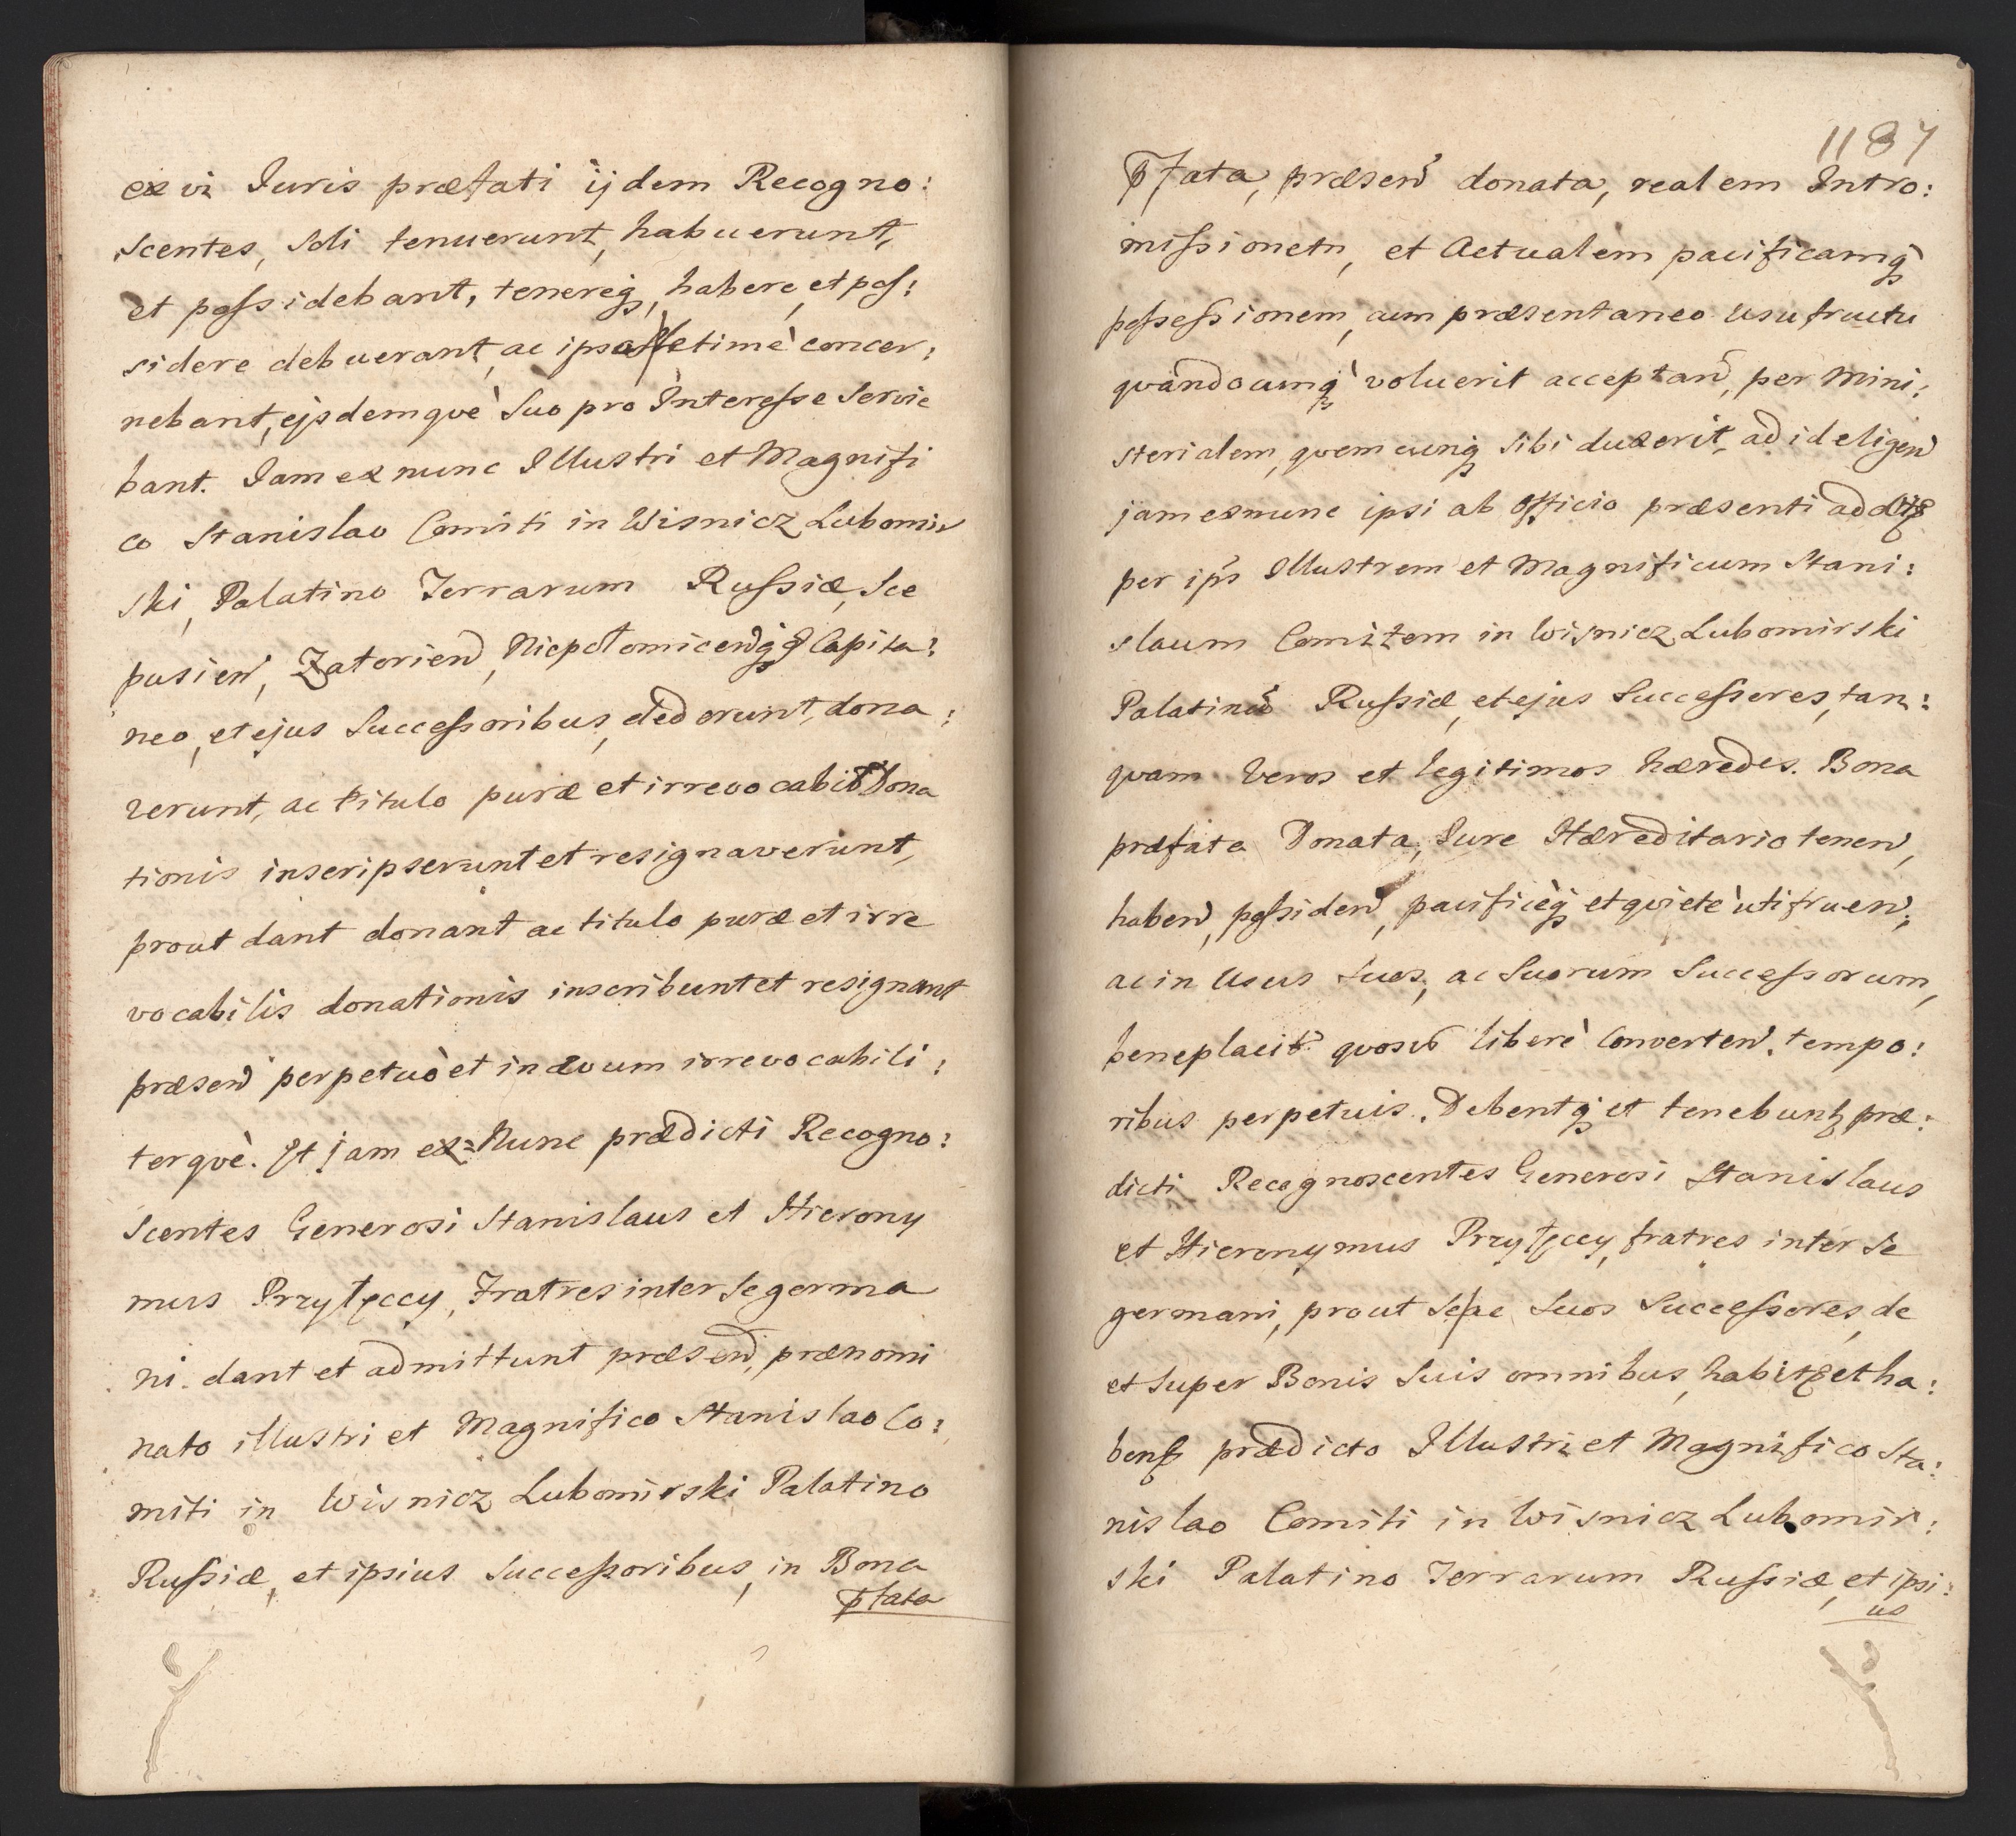 ex vi Iuris præfati ijdem Recogno:
scentes, soli tenuerunt, habuerunt,
et possidebant, tenereq̃, habere, et pos:
sidere debuerant, ac ipsos letimè concer:
nebant, ejsdemquè Suo pro Interesse Servie
bant. Iam ex nunc Illustri et Magnifi
co Stanislao Comiti in Wisnicz Lubomir
ski, Palatino Terrarum Russiæ, Sce
pusien, Zatorien, Niepołomicenq̃ Capita:
neo, et ejus Successoribus, dederunt, dona:
verunt, ac titulo puræ et irrevocabil Dona
tionis inscripserunt et resignaverunt,
prout dant donant ac titulo puræ et irre
vocabilis donationis inscribunt et resignant
præsen perpetuò et in ævum irrevocabili:
terquè. Et jam ex=Nunc prædicti Recogno:
scentes Generosi Stanislaus et Hierony
mus Przyłęccy, Fratres inter Se germa
ni. dant et admittunt præsen, prænomi
nato illustri et Magnifico Stanislao Co:
miti in Wisnicz Lubomirski Palatino
Russiæ, et ipsius Successoribus, in Bona
pfata
1187
Pfata, præsen donata, realem Intro:
missionem, et Actualem pacificamq̃
possessionem, cum præsentaneo usufructu
quandocumq̃ voluerit acceptan, per Mini:
sterialem, quemcunq̃ sibi duxerit, ad id eligen
jam exnunc ipsi ab officio præsenti addit
per ips Illustrem et Magnificum Stani:
slaum Comitem in Wisnicz Lubomirski
Palatinũ Russiæ, et ejus Successores, tan:
quam Veros et legitimos hæredes. Bona
præfata Donata, Iure Hæreditario tenen,
haben, possiden, pacificèq̃ et quietè utifruen,
ac in usus suos, ac Suorum Successorum,
beneplacit quosv liberè Converten. tempo:
ribus perpetuis. Debentq̃ et tenebunt præ:
dicti Recognoscentes Generosi Stanislaus
et Hieronymus Przyłęccy, fratres inter Se
germani, prout Se ac Suos Successores, de
et super Bonis Suis omnibus, habit et ha:
ben prædicto Illustri et Magnifico Sta:
nislao Comiti in Wisnicz Lubomir:
ski Palatino Terrarum Russiæ, et ipsi:
us